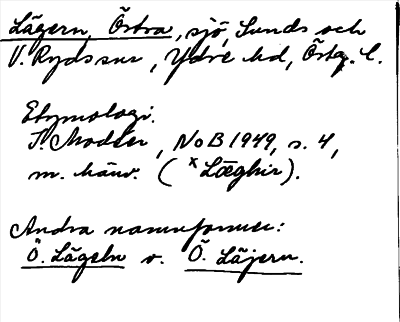 Lägern, Östra, sjö, Sunds och
V. Ryds snr, Ydre hd, Östg. l.
Etymologi.
I. Modéer, NoB 1949, s. 4,
m. hänv. (×Lǣghir).
Andra namnformer:
Ö. Lägeln o. Ö. Läjern.